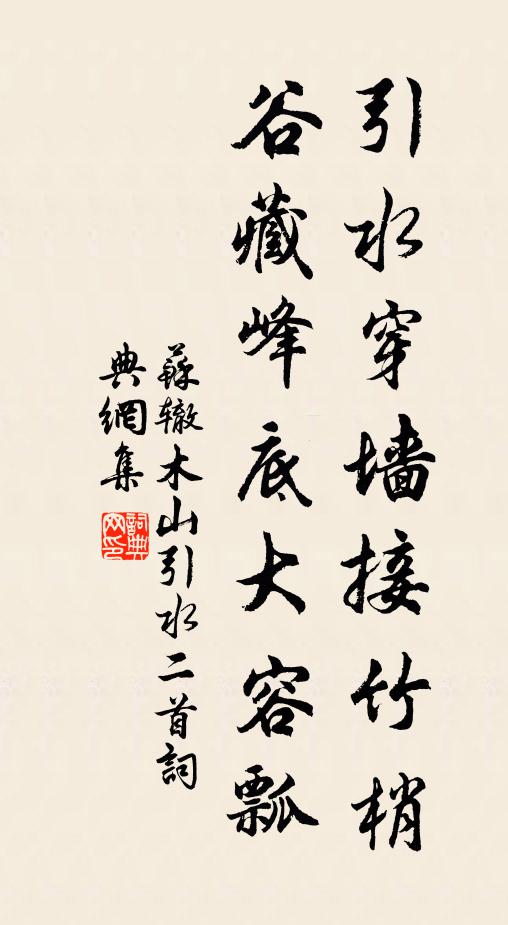 引水穿墙接竹梢
谷藏峰底大容瓢
蘇辙木山引水二首詞
典網集
詞典
网印